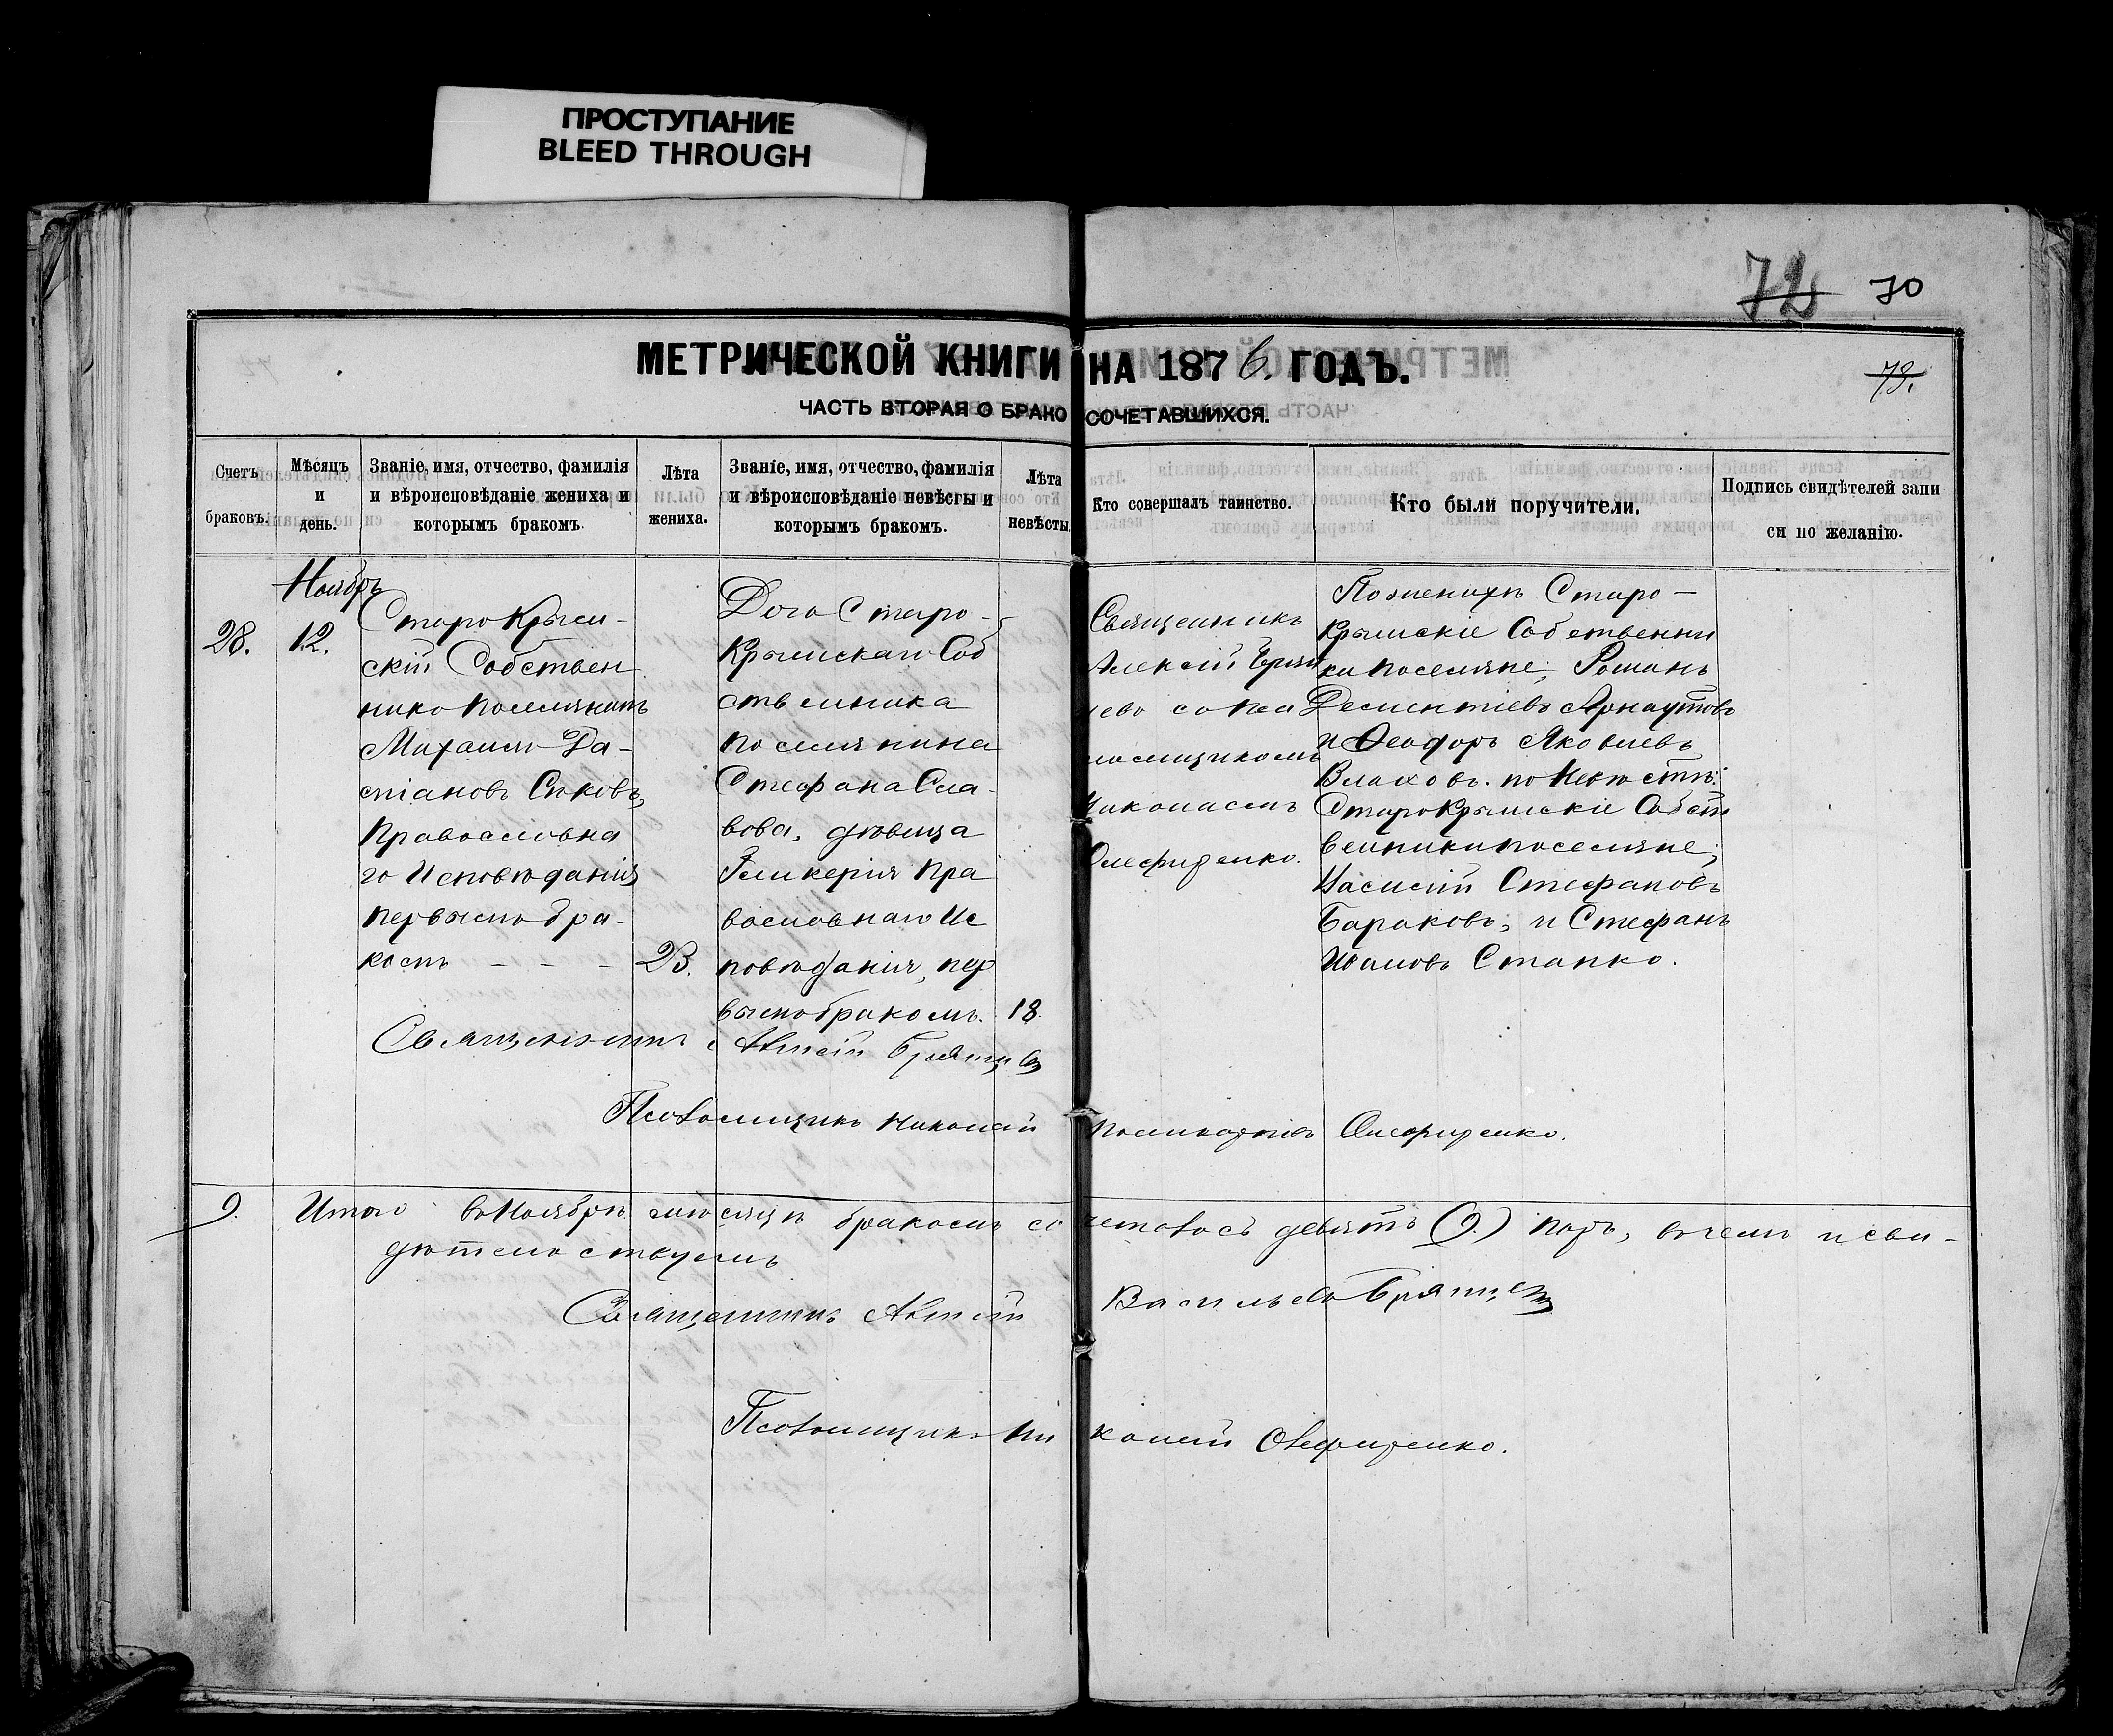 ПРОСТУПАНИЕ
BLEED THROUGH
72 70
МЕТРИЧЕСКОЙ КНИГИ НА 1876. ГОДЪ.
73.
ЧАСТЬ ВТОРАЯ О БРАКОСОЧЕТАВШИХСЯ.
Счетъ
браковъ.
Мѣсяцъ
и
день.
Званіе, имя, отчество, фамилія
и вѣроисповѣданіе жениха и
которымъ бракомъ.
Лѣта
жениха.
Званіе, имя, отчество, фамилія
и вѣроисповѣданіе невѣсты и
которымъ бракомъ.
Лѣта
невѣсты.
Кто совершалъ таинство.
Кто были поручители.
Подпись свидѣтелей запи
си по желанію.
28.
Ноябрь
12.
Старо Крым-
скій Собствен
никъ поселянинъ
Михаилъ
Православна
го Исповѣданія
первымъ бра-
комъ - - -
23.
Дочь Старо-
Крымскаго Соб
ственника
поселянина
Стефана Сла-
вова, дѣвица
Гликерія пра
вославнаго Ис
повѣданія, пер
вымъ бракомъ.
18.
Священникъ
Алексій Брян
цевъ съ пса
ломщикомъ
Николаемъ
Олефиренко.
По женихѣ Старо-
Крымскіе Собственни
ки поселяне; Романъ
Дементіевъ Арнаутовъ
и Феодоръ Яковлевъ
Влаховъ. по Невѣстѣ:
Старокрымскіе Собст
венники поселяне;
Василій Стефановъ
Бараковъ, и Стефанъ
Ивановъ Станко.
Священникъ Алексій Брянцевъ
Псаломщикъ Николай Олефиренко.
9. Итого въ Ноябрѣ мѣсяцѣ бракомъ сочеталось девять (9.) паръ, въ чемъ и сви-
дѣтельствуемъ
Священникъ Алексій Васильевъ Брянцевъ
Псаломщикъ Николай Олефиренко.